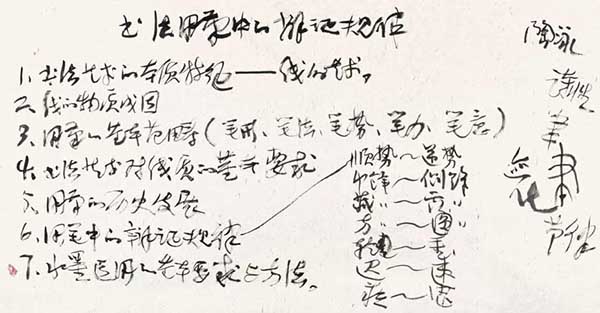 书法用笔中的辩证规律
1. 书法艺术的本质特征——线的艺术。
2. 线的物质成因
3. 用笔的基本范畴(笔用、笔法、笔势、笔力、笔意)
4. 书法艺术对线质的基本要求
5. 用笔的历史发展
6. 用笔中的辩证规律
7. 水墨运用的基本要求与方法。
顺势～逆势
中锋～侧锋
藏〃～露〃
方～圆
轻～重
迟～速